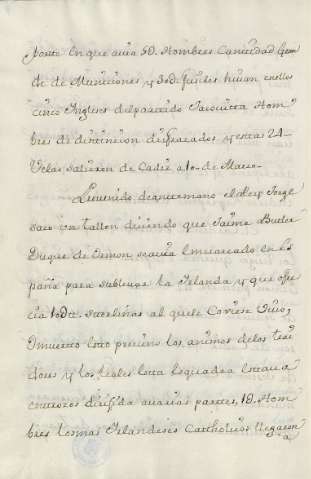 porte en que avia 50. Hombres Cantidad gran
de de Municiones y 30d. fusiles hivan en ellos
cinco Ingleses del partido Jacovita Hom
bres de distincion disfrazados y estas 24
Velas salieron de Cadiz a 10. de Marzo.
Prevenido de antemano el Rey Jorge
saco un tallon diciendo que Jaime Butler
Duque de Ormon se avia embarcado en Es
paña para sublevar la Irlanda y que ofre
cia 10d tt. sterlinas al que le cogiese Vivo,
o muerto esto previno los animos de los
dores y los leales esta esquadra estava
dirixida a varias partes, 10. Hom
bres los mas Irlandeses Catholicos llegaron
a